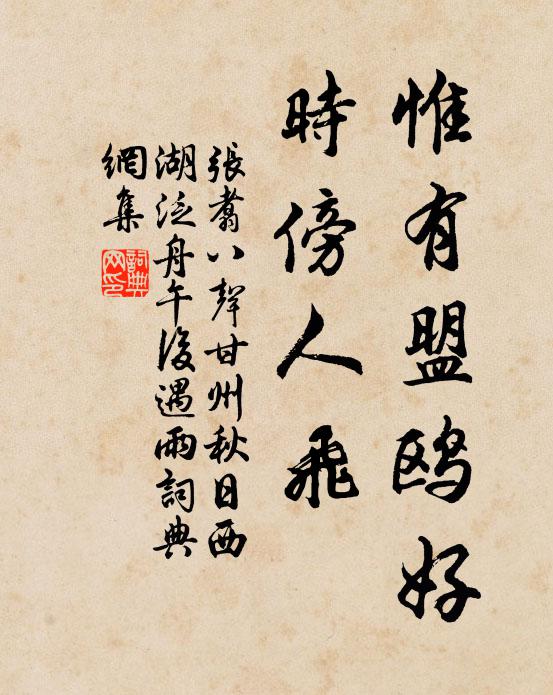 惟有盟鸥好
時傍人飛
張翥八聲甘州秋日西
湖泛舟午後遇雨詞典
網集
詞典網印